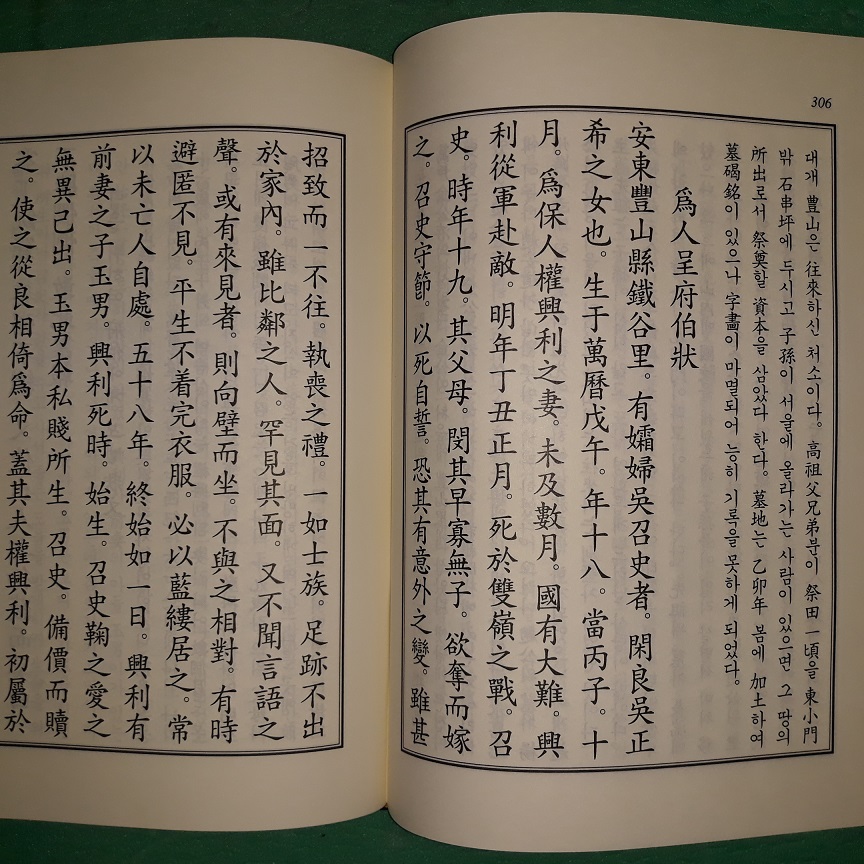 306
대개 豊山은 往來하신 처소이다. 高祖父兄弟분이 祭田 一頃을 東小門
밖 石串坪에 두시고 子孫이 서울에 올라가는 사람이 있으면 그 땅의
所出로서 祭奠할 資本을 삼았다 한다. 墓地는 乙卯年 봄에 加土하여
墓碣銘이 있으나 字畵이 마멸되어 능히 기록을 못하게 되었다.
爲人呈府伯狀
安東豐山縣鐵谷里。有孀婦吳召史者。閑良吳正
希之女也。生于萬曆戊午。年十八。當丙子。十
月。爲保人權興利之妻。未及數月。國有大難。興
利從軍赴敵。明年丁丑正月。死於雙嶺之戰。召
史。時年十九。其父母。閔其早寡無子。欲奪而嫁
之。召史守節。以死自誓。恐其有意外之變。雖甚
招致而一不往。執喪之禮。一如士族。足跡不出
於家內。雖比鄰之人。罕見其面。又不聞言語之
聲。或有來見者。則向壁而坐。不與之相對。有時
避匿不見。平生不着完衣服。必以藍縷居之。常
以未亡人自處。五十八年。終始如一日。興利有
前妻之子玉男。興利死時。始生。召史鞠之愛之
無異己出。玉男本私賤所生。召史。備價而贖
之。使之從良相倚爲命。蓋其夫權興利。初屬於